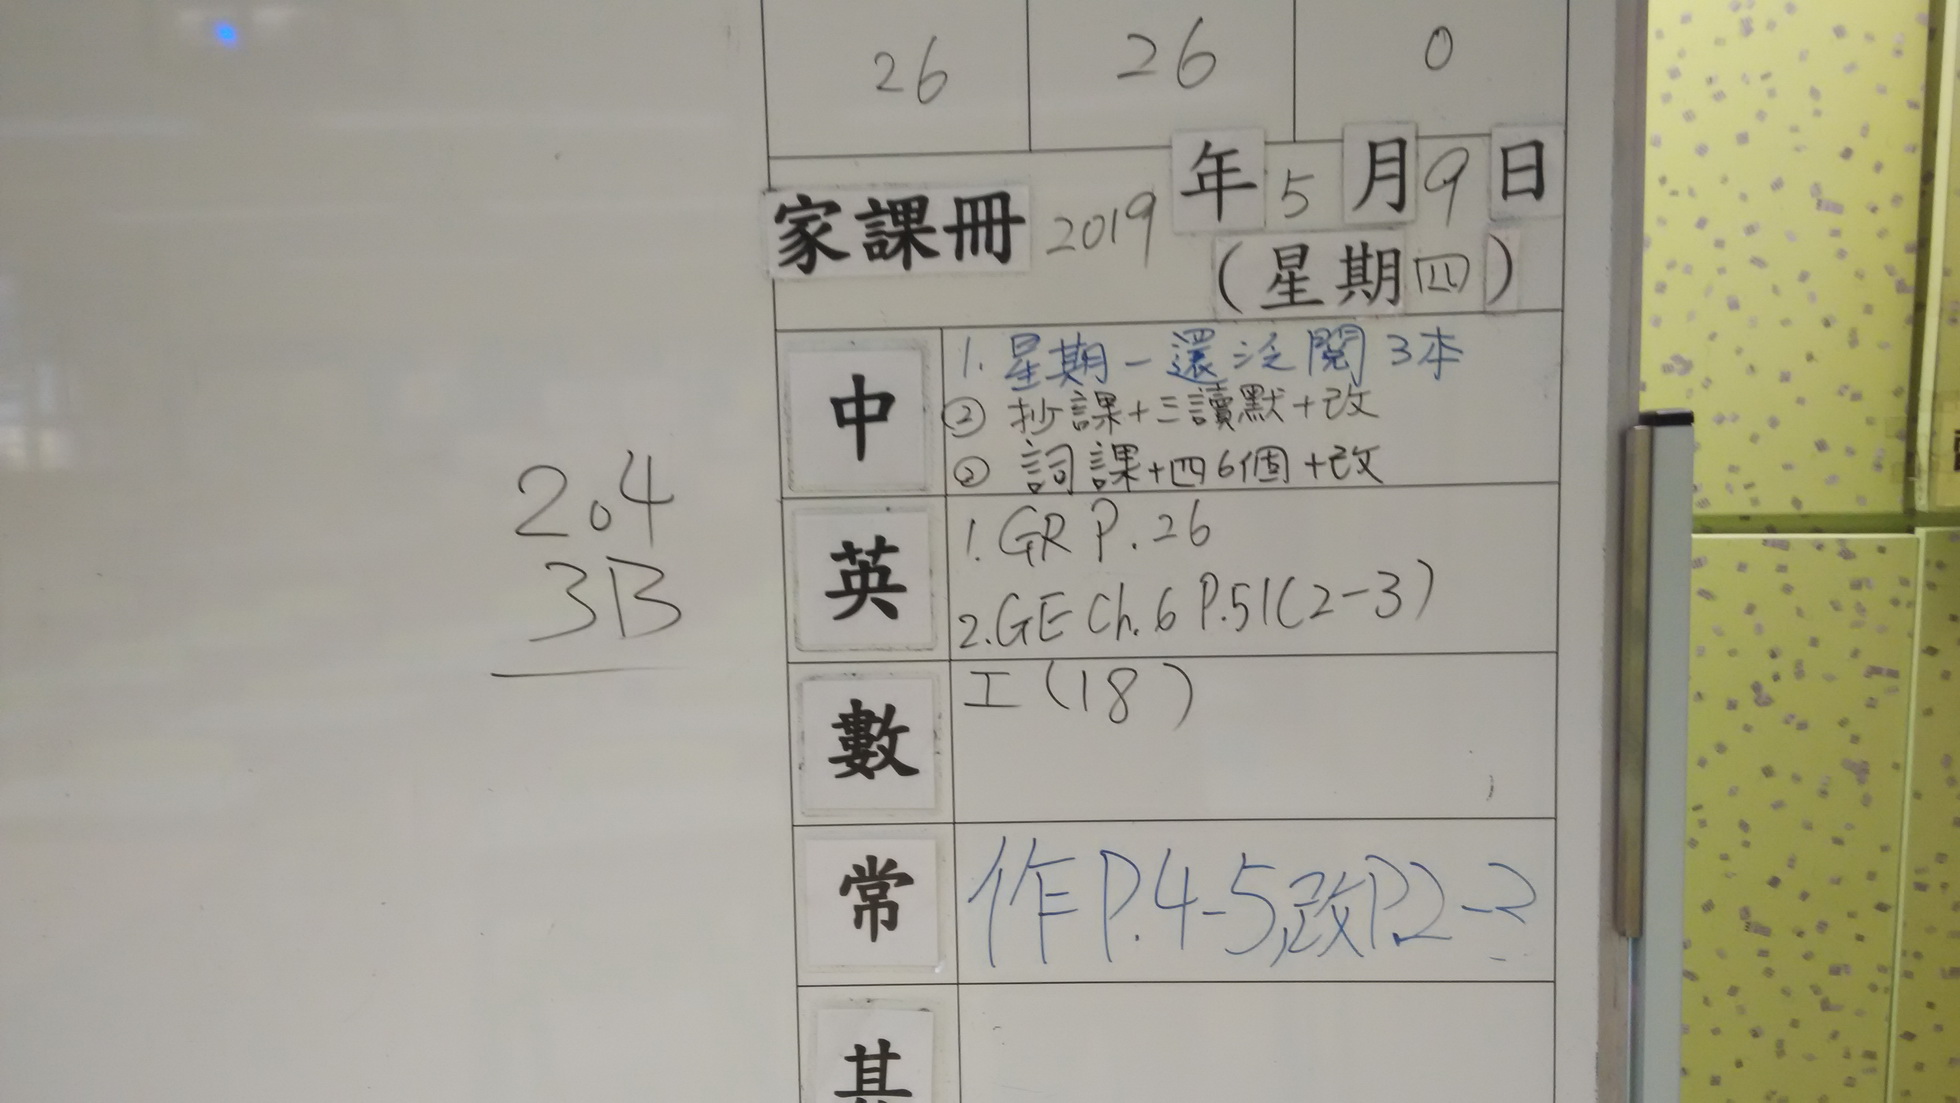 26 26 0
家課冊 2019 年 5 月 9 日
(星期四)
中
1. 星期一還泛閱3本
② 抄課+三讀默+改
② 詞課+四6個+改
英
1. GR P. 26
2. GE Ch. 6 P.51(2-3)
數
工(18)
常
作P.4-5,改P.2-3
其
2.4
3B